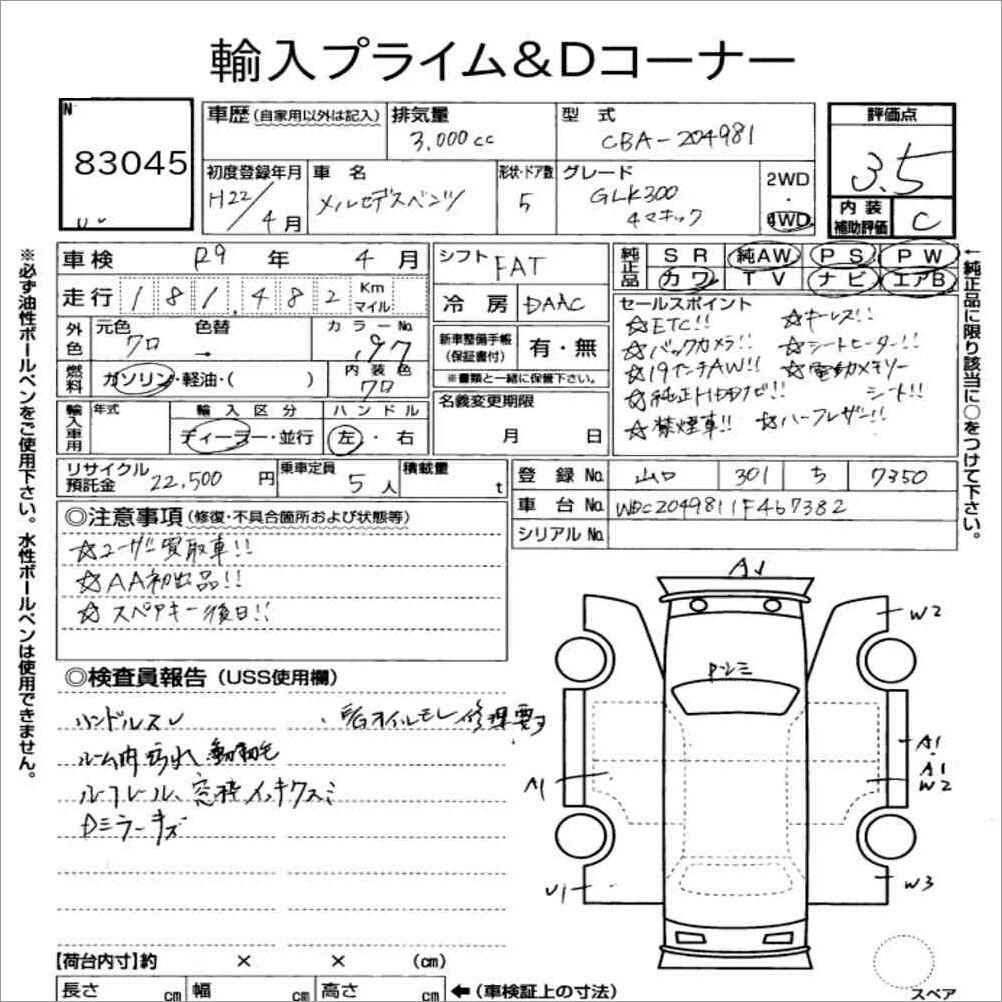 輸入プライム&Dコーナー
N
83045
車歴 (自家用以外は記入) 排気量 3,000cc 型 式 CBA-204981
評価点 3.5
初度登録年月 H22/4月 車 名 メルセデスベンツ 形状・ドア数 5 グレード GLK300 4マチック 2WD・4WD
内装補助評価 C
車検 R9年 4月 シフト FAT 純正品 SR 純AW PS PW
カワ TV ナビ エアB
走行 181,482 Km マイル 冷房 DAAC
外色 元色 クロ 色替 → カラーNo. 197
燃料 ガソリン・軽油・( ) 内装色 クロ
新車整備手帳(保証書付) 有・無
※書類と一緒に保管下さい。
セールスポイント
☆ETC!! ☆キーレス!!
☆バックカメラ!! ☆シートヒーター!!
☆19インチAW!! ☆電動メモリーシート!!
☆純正HDDナビ!!
☆禁煙車!! ☆ハーフレザー!!
輸入車用 年式 輸入区分 ハンドル
ディーラー・並行 左・右
名義変更期限 月 日
リサイクル預託金 22,500円 乗車定員 5人 積載量 t
登録No. 山口 301 ち 7350
車台No. WDC2049811F467382
シリアルNo.
◎注意事項 (修復・不具合箇所および状態等)
☆ユーザー買取車!!
☆AA初出品!!
☆スペアキー後日!!
◎検査員報告 (USS使用欄)
ハンドルスレ
オイルモレ修理要す
ルーム内汚れ
ルーフレール、窓枠メッキクスミ
Dミラーキズ
A1
W2
F-ンミ
A1
A1
W2
A1
U1
W3
スペア
【荷台内寸】約 × × (cm)
長さ cm 幅 cm 高さ cm ←(車検証上の寸法)
※必ず油性ボールペンをご使用下さい。水性ボールペンは使用できません。
←純正品に限り該当に○をつけて下さい。